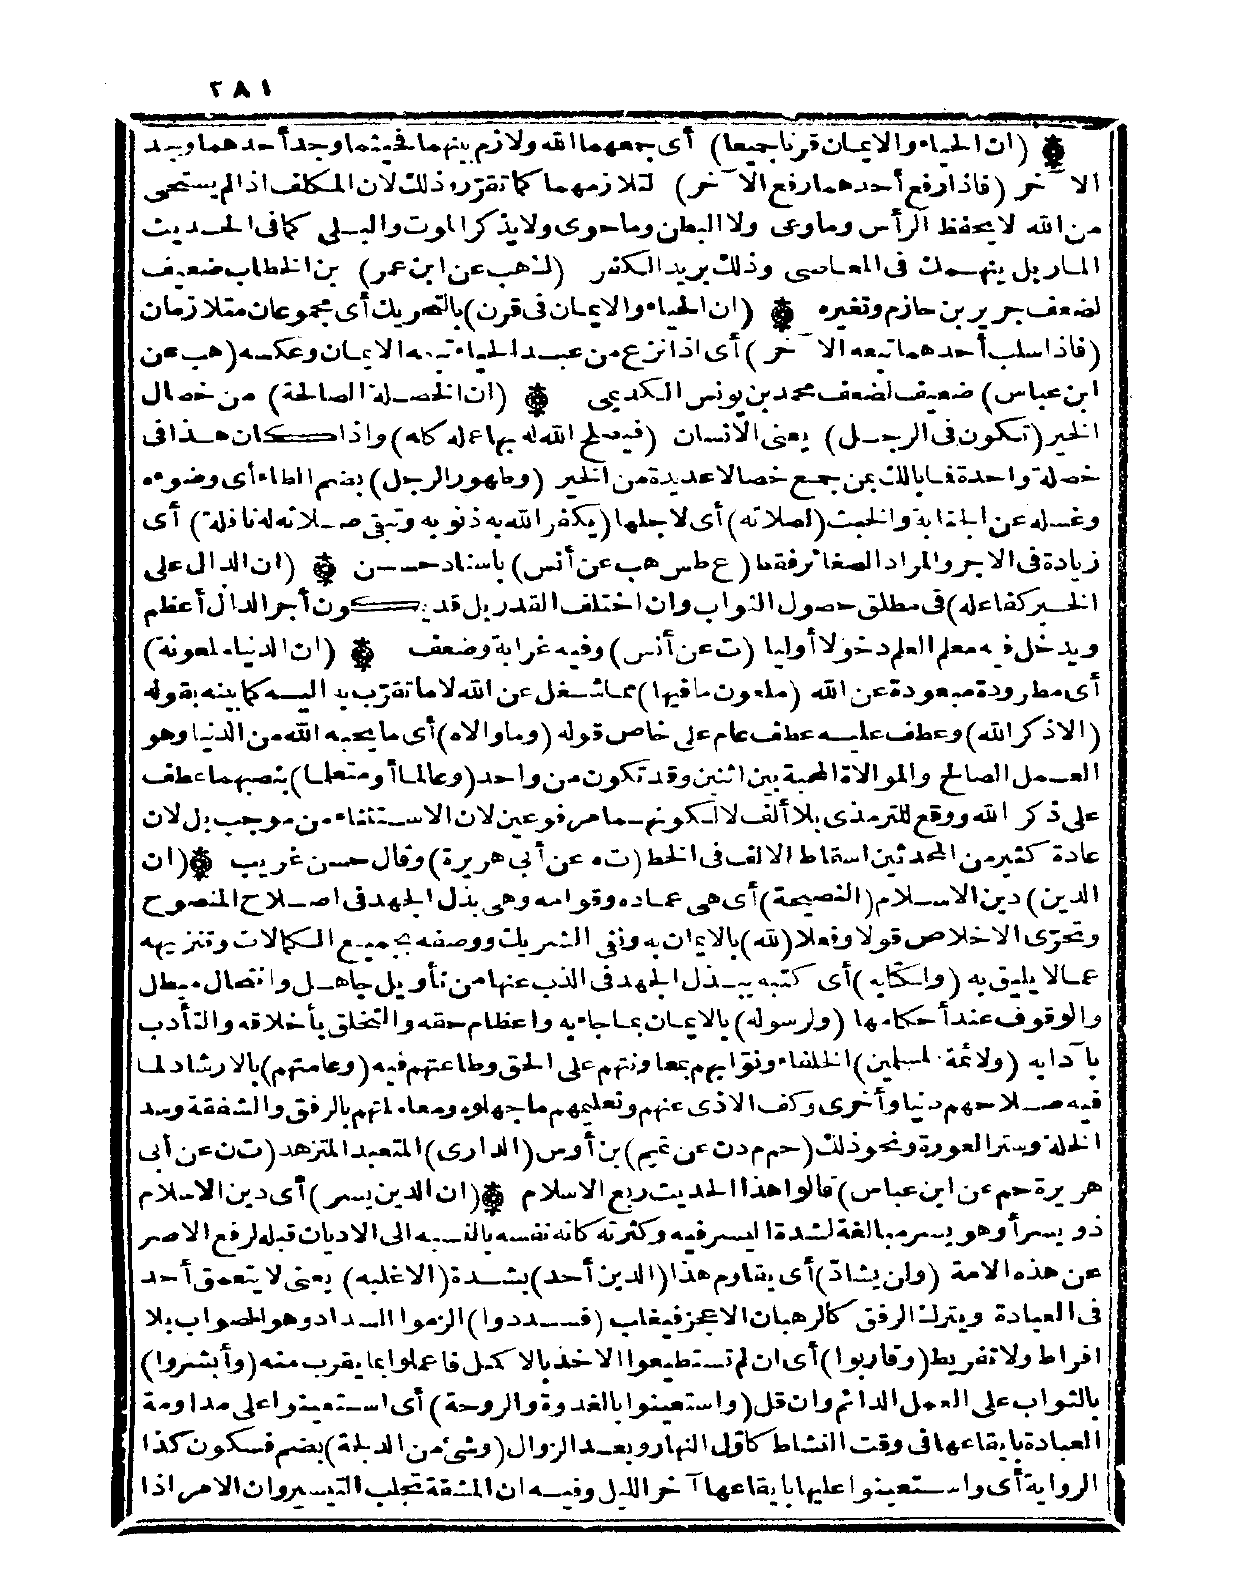 ٢٨١
(ان الحياء والايمان قرنا جميعا) أى جمعهما الله ولازم بينهما فحيثما وجد أحدهما وجد
الآخر (فاذا رفع أحدهما رفع الآخر) لتلازمهما كما تقرّر وذلك لان المكلف اذا لم يستحى
من الله لا يحفظ الرأس وما وعى ولا البطن وما حوى ولا يذكر الموت والبلى كما فى الحديث
المار بل ينهمك فى المعاصى وذلك بريد الكفر (ك هب عن ابن عمر) بن الخطاب ضعيف
لضعف جرير بن حازم وتغيره (ان الحياء والايمان فى قرن) بالتحريك أى مجموعان متلازمان
(فاذا سلب أحدهما تبعه الآخر) أى اذا نزع من عبد الحياء تبعه الايمان وعكسه (هب عن
ابن عباس) ضعيف لضعف محمد بن يونس الكديمى (ان الخصلة الصالحة) من خصال
الخير (تكون فى الرجل) يعنى الانسان (فيصلح الله له بها عمله كله) واذا كان هذا فى
خصلة واحدة فما بالك بمن جمع خصالا عديدة من الخير (وطهور الرجل) بضم الطاء أى وضوءه
وغسله عن الجنابة والخبث (لصلاته) أى لاجلها (يكفر الله به ذنوبه وتبقى صلاته له نافلة) أى
زيادة فى الاجر والمراد الصغائر فقط (ع طس هب عن أنس) باسناد حسن (ان الدال على
الخير كفاعله) فى مطلق حصول الثواب وان اختلف القدر بل قد يكون أجر الدال أعظم
ويدخل فيه معلم العلم دخولا أوليا (ت عن أنس) وفيه غرابة وضعف (ان الدنيا ملعونة)
أى مطرودة مبعودة عن الله (ملعون ما فيها) مما شغل عن الله لا ما تقرّب به اليه كما بينه بقوله
(الا ذكر الله) وعطف عليه عطف عام على خاص قوله (وما والاه) أى ما يحبه الله من الدنيا وهو
العمل الصالح والموالاة المحبة بين اثنين وقد تكون من واحد (وعالما أو متعلما) بنصبهما عطف
على ذكر الله ووقع للترمذى بلا ألف لا لكونهما مرفوعين لان الاستثناء من موجب بل لان
عادة كثير من المحدثين اسقاط الالف فى الخط (ت ه عن أبى هريرة) وقال حسن غريب (ان
الدين) دين الاسلام (النصيحة) أى هى عماده وقوامه وهى بذل الجهد فى اصلاح المنصوح
وتحرّى الاخلاص قولا وفعلا (لله) بالايمان به ونفى الشريك ووصفه بجميع الكمالات وتنزيهه
عما لا يليق به (ولكتابه) أى كتبه ببذل الجهد فى الذب عنها من تأويل جاهل وانتحال مبطل
والوقوف عند أحكامها (ولرسوله) بالايمان بما جاء به واعظام حقه والتخلق بأخلاقه والتأدب
بآدابه (ولائمة المسلمين) الخلفاء ونوّابهم بمعاونتهم على الحق وطاعتهم فيه (وعامتهم) بالارشاد لما
فيه صلاحهم دنيا وأخرى وكف الاذى عنهم وتعليمهم ما جهلوه ومعاملتهم بالرفق والشفقة وسد
الخلة وستر العورة ونحو ذلك (حم م د ن عن تميم) بن أوس (الدارى) المتعبد المتزهد (ت ن عن أبى
هريرة حم عن ابن عباس) قالوا هذا الحديث ربع الاسلام (ان الدين يسر) أى دين الاسلام
ذو يسر أو هو يسر مبالغة لشدة اليسر فيه وكثرته كانه نفسه بالنسبة الى الاديان قبله لرفع الاصر
عن هذه الامة (ولن يشادّ) أى يقاوم هذا (الدين أحد) بشدة (الا غلبه) يعنى لا يتعمق أحد
فى العبادة ويترك الرفق كالرهبان الا عجز فيغلب (فسددوا) الزموا السداد وهو الصواب بلا
افراط ولا تفريط (وقاربوا) أى ان لم تستطيعوا الاخذ بالاكمل فاعملوا بما يقرب منه (وأبشروا)
بالثواب على العمل الدائم وان قل (واستعينوا بالغدوة والروحة) أى استعينوا على مداومة
العبادة بايقاعها فى وقت النشاط كاوّل النهار وبعد الزوال (وشئ من الدلجة) بضم فسكون كذا
الرواية أى واستعينوا عليها بايقاعها آخر الليل وفيه ان المشقة تجلب التيسير وان الامر اذا